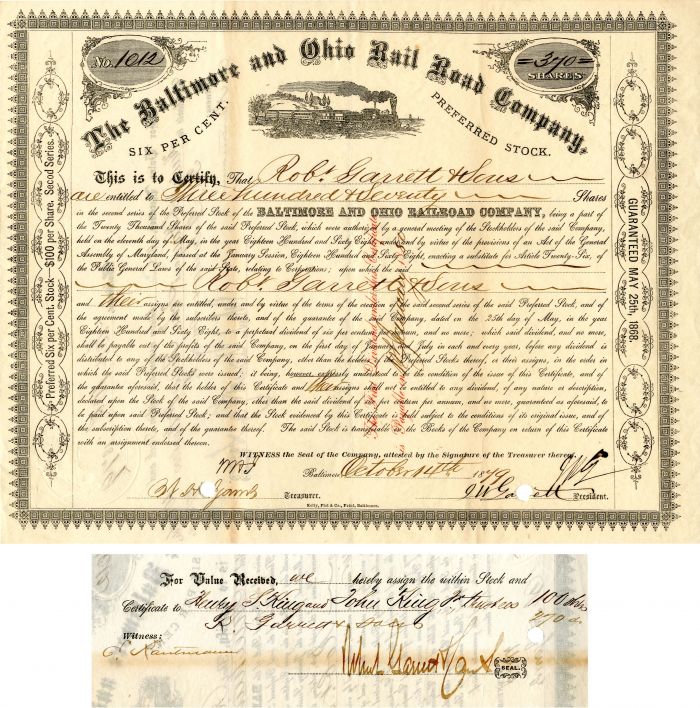 No. 1012
=370=
SHARES
The Baltimore and Ohio Rail Road Company.
SIX PER CENT. PREFERRED STOCK.
Preferred Six per Cent. Stock $100 per Share. Secod Series.
GUARANTEED MAY 25th, 1868.
This is to Certify, That Robt. Garrett & Sons
are entitled to Three hundred & Seventy Shares
in the second series of the Preferred Stock of the BALTIMORE AND OHIO RAILROAD COMPANY, being a part of
the Twenty Thousand Shares of the said Preferred Stock, which were authorized by a general meeting of the Stockholders of the said Company,
held on the eleventh day of May, in the year Eighteen Hundred and Sixty Eight, and by virtue of the provisions of an Act of the General
Assembly of Maryland, passed at the January Session, Eighteen Hundred and Sixty Eight, enacting a substitute for Article Twenty-Six, of
the Public General Laws of the said State, relating to Corporations; upon which the said
Robt. Garrett & Sons
and their assigns are entitled, under and by virtue of the terms of the creation of the said second series of the said Preferred Stock, and of
the agreement made by the subscribers thereto, and of the guarantee of the said Company, dated on the 25th day of May, in the year
Eighteen Hundred and Sixty Eight, to a perpetual dividend of six per centum per annum, and no more; which said dividend, and no more,
shall be payable out of the profits of the said Company, on the first day of January and July in each and every year, before any dividend is
distributed to any of the Stockholders of the said Company, other than the holders of the Preferred Stocks thereof, or their assigns, in the order in
which the said Preferred Stocks were issued; it being, however, expressly understood to be the condition of the issue of this Certificate, and of
the guarantee aforesaid, that the holders of this Certificate and their assigns shall not be entitled to any dividend, of any nature or description,
declared upon the Stock of the said Company, other than the said dividend of six per centum per annum, and no more, guaranteed as aforesaid, to
be paid upon said Preferred Stock; and that the Stock evidenced by this Certificate is and shall be subject to the conditions of its original issue, and of
the subscription thereto, and of the guarantee thereof. The said Stock is transferable on the Books of the Company on return of this Certificate
with an assignment endorsed thereon.
WITNESS the Seal of the Company, attested by the Signature of the Treasurer thereof.
Baltimore October 14th 1879
Treasurer. J W Garrett President.
Kelly, Piet & Co., Print, Baltimore.
For Value Received, we hereby assign the within Stock and
Certificate to Henry S. King and John King Jr. Trustees 100 shs
R. Garrett & Sons 270 do
Witness:
Robert Garrett & Sons
SEAL.